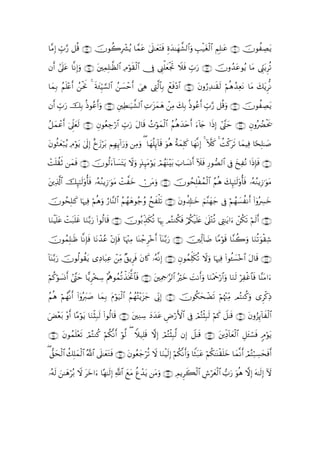 عَٰلِمِ ٱلْغَيْبِ وَٱلشَّهَٰدَةِ فَتَعَٰلَىٰ عَمَّا يُشْرِكُونَ ۝ قُل رَّبِّ إِمَّا
تُرِيَنِّى مَا يُوعَدُونَ ۝ رَبِّ فَلَا تَجْعَلْنِى فِى ٱلْقَوْمِ ٱلظَّٰلِمِينَ ۝ وَإِنَّا عَلَىٰٓ أَن
نُّرِيَكَ مَا نَعِدُهُمْ لَقَٰدِرُونَ ۝ ٱدْفَعْ بِٱلَّتِى هِىَ أَحْسَنُ ٱلسَّيِّئَةَ ۚ نَحْنُ أَعْلَمُ بِمَا
يَصِفُونَ ۝ وَقُل رَّبِّ أَعُوذُ بِكَ مِنْ هَمَزَٰتِ ٱلشَّيَٰطِينِ ۝ وَأَعُوذُ بِكَ رَبِّ أَن
يَحْضُرُونِ ۝ حَتَّىٰٓ إِذَا جَآءَ أَحَدَهُمُ ٱلْمَوْتُ قَالَ رَبِّ ٱرْجِعُونِ ۝ لَعَلِّىٓ أَعْمَلُ
صَٰلِحًا فِيمَا تَرَكْتُ ۚ كَلَّآ ۚ إِنَّهَا كَلِمَةٌ هُوَ قَآئِلُهَا ۖ وَمِن وَرَآئِهِم بَرْزَخٌ إِلَىٰ يَوْمِ يُبْعَثُونَ
۝ فَإِذَا نُفِخَ فِى ٱلصُّورِ فَلَآ أَنسَابَ بَيْنَهُمْ يَوْمَئِذٍ وَلَا يَتَسَآءَلُونَ ۝ فَمَن ثَقُلَتْ
مَوَٰزِينُهُۥ فَأُو۟لَٰٓئِكَ هُمُ ٱلْمُفْلِحُونَ ۝ وَمَنْ خَفَّتْ مَوَٰزِينُهُۥ فَأُو۟لَٰٓئِكَ ٱلَّذِينَ
خَسِرُوٓا۟ أَنفُسَهُمْ فِى جَهَنَّمَ خَٰلِدُونَ ۝ تَلْفَحُ وُجُوهَهُمُ ٱلنَّارُ وَهُمْ فِيهَا كَٰلِحُونَ
۝ أَلَمْ تَكُنْ ءَايَٰتِى تُتْلَىٰ عَلَيْكُمْ فَكُنتُم بِهَا تُكَذِّبُونَ ۝ قَالُوا۟ رَبَّنَا غَلَبَتْ عَلَيْنَا
شِقْوَتُنَا وَكُنَّا قَوْمًا ضَآلِّينَ ۝ رَبَّنَآ أَخْرِجْنَا مِنْهَا فَإِنْ عُدْنَا فَإِنَّا ظَٰلِمُونَ ۝
قَالَ ٱخْسَـُٔوا۟ فِيهَا وَلَا تُكَلِّمُونِ ۝ إِنَّهُۥ كَانَ فَرِيقٌ مِّنْ عِبَادِى يَقُولُونَ رَبَّنَآ
ءَامَنَّا فَٱغْفِرْ لَنَا وَٱرْحَمْنَا وَأَنتَ خَيْرُ ٱلرَّٰحِمِينَ ۝ فَٱتَّخَذْتُمُوهُمْ سِخْرِيًّا حَتَّىٰٓ أَنسَوْكُمْ
ذِكْرِى وَكُنتُم مِّنْهُمْ تَضْحَكُونَ ۝ إِنِّى جَزَيْتُهُمُ ٱلْيَوْمَ بِمَا صَبَرُوٓا۟ أَنَّهُمْ هُمُ
ٱلْفَآئِزُونَ ۝ قَٰلَ كَمْ لَبِثْتُمْ فِى ٱلْأَرْضِ عَدَدَ سِنِينَ ۝ قَالُوا۟ لَبِثْنَا يَوْمًا أَوْ بَعْضَ
يَوْمٍ فَسْـَٔلِ ٱلْعَآدِّينَ ۝ قَٰلَ إِن لَّبِثْتُمْ إِلَّا قَلِيلًا ۖ لَّوْ أَنَّكُمْ كُنتُمْ تَعْلَمُونَ ۝
أَفَحَسِبْتُمْ أَنَّمَا خَلَقْنَٰكُمْ عَبَثًا وَأَنَّكُمْ إِلَيْنَا لَا تُرْجَعُونَ ۝ فَتَعَٰلَى ٱللَّهُ ٱلْمَلِكُ ٱلْحَقُّ ۖ
لَآ إِلَٰهَ إِلَّا هُوَ رَبُّ ٱلْعَرْشِ ٱلْكَرِيمِ ۝ وَمَن يَدْعُ مَعَ ٱللَّهِ إِلَٰهًا ءَاخَرَ لَا بُرْهَٰنَ لَهُۥ